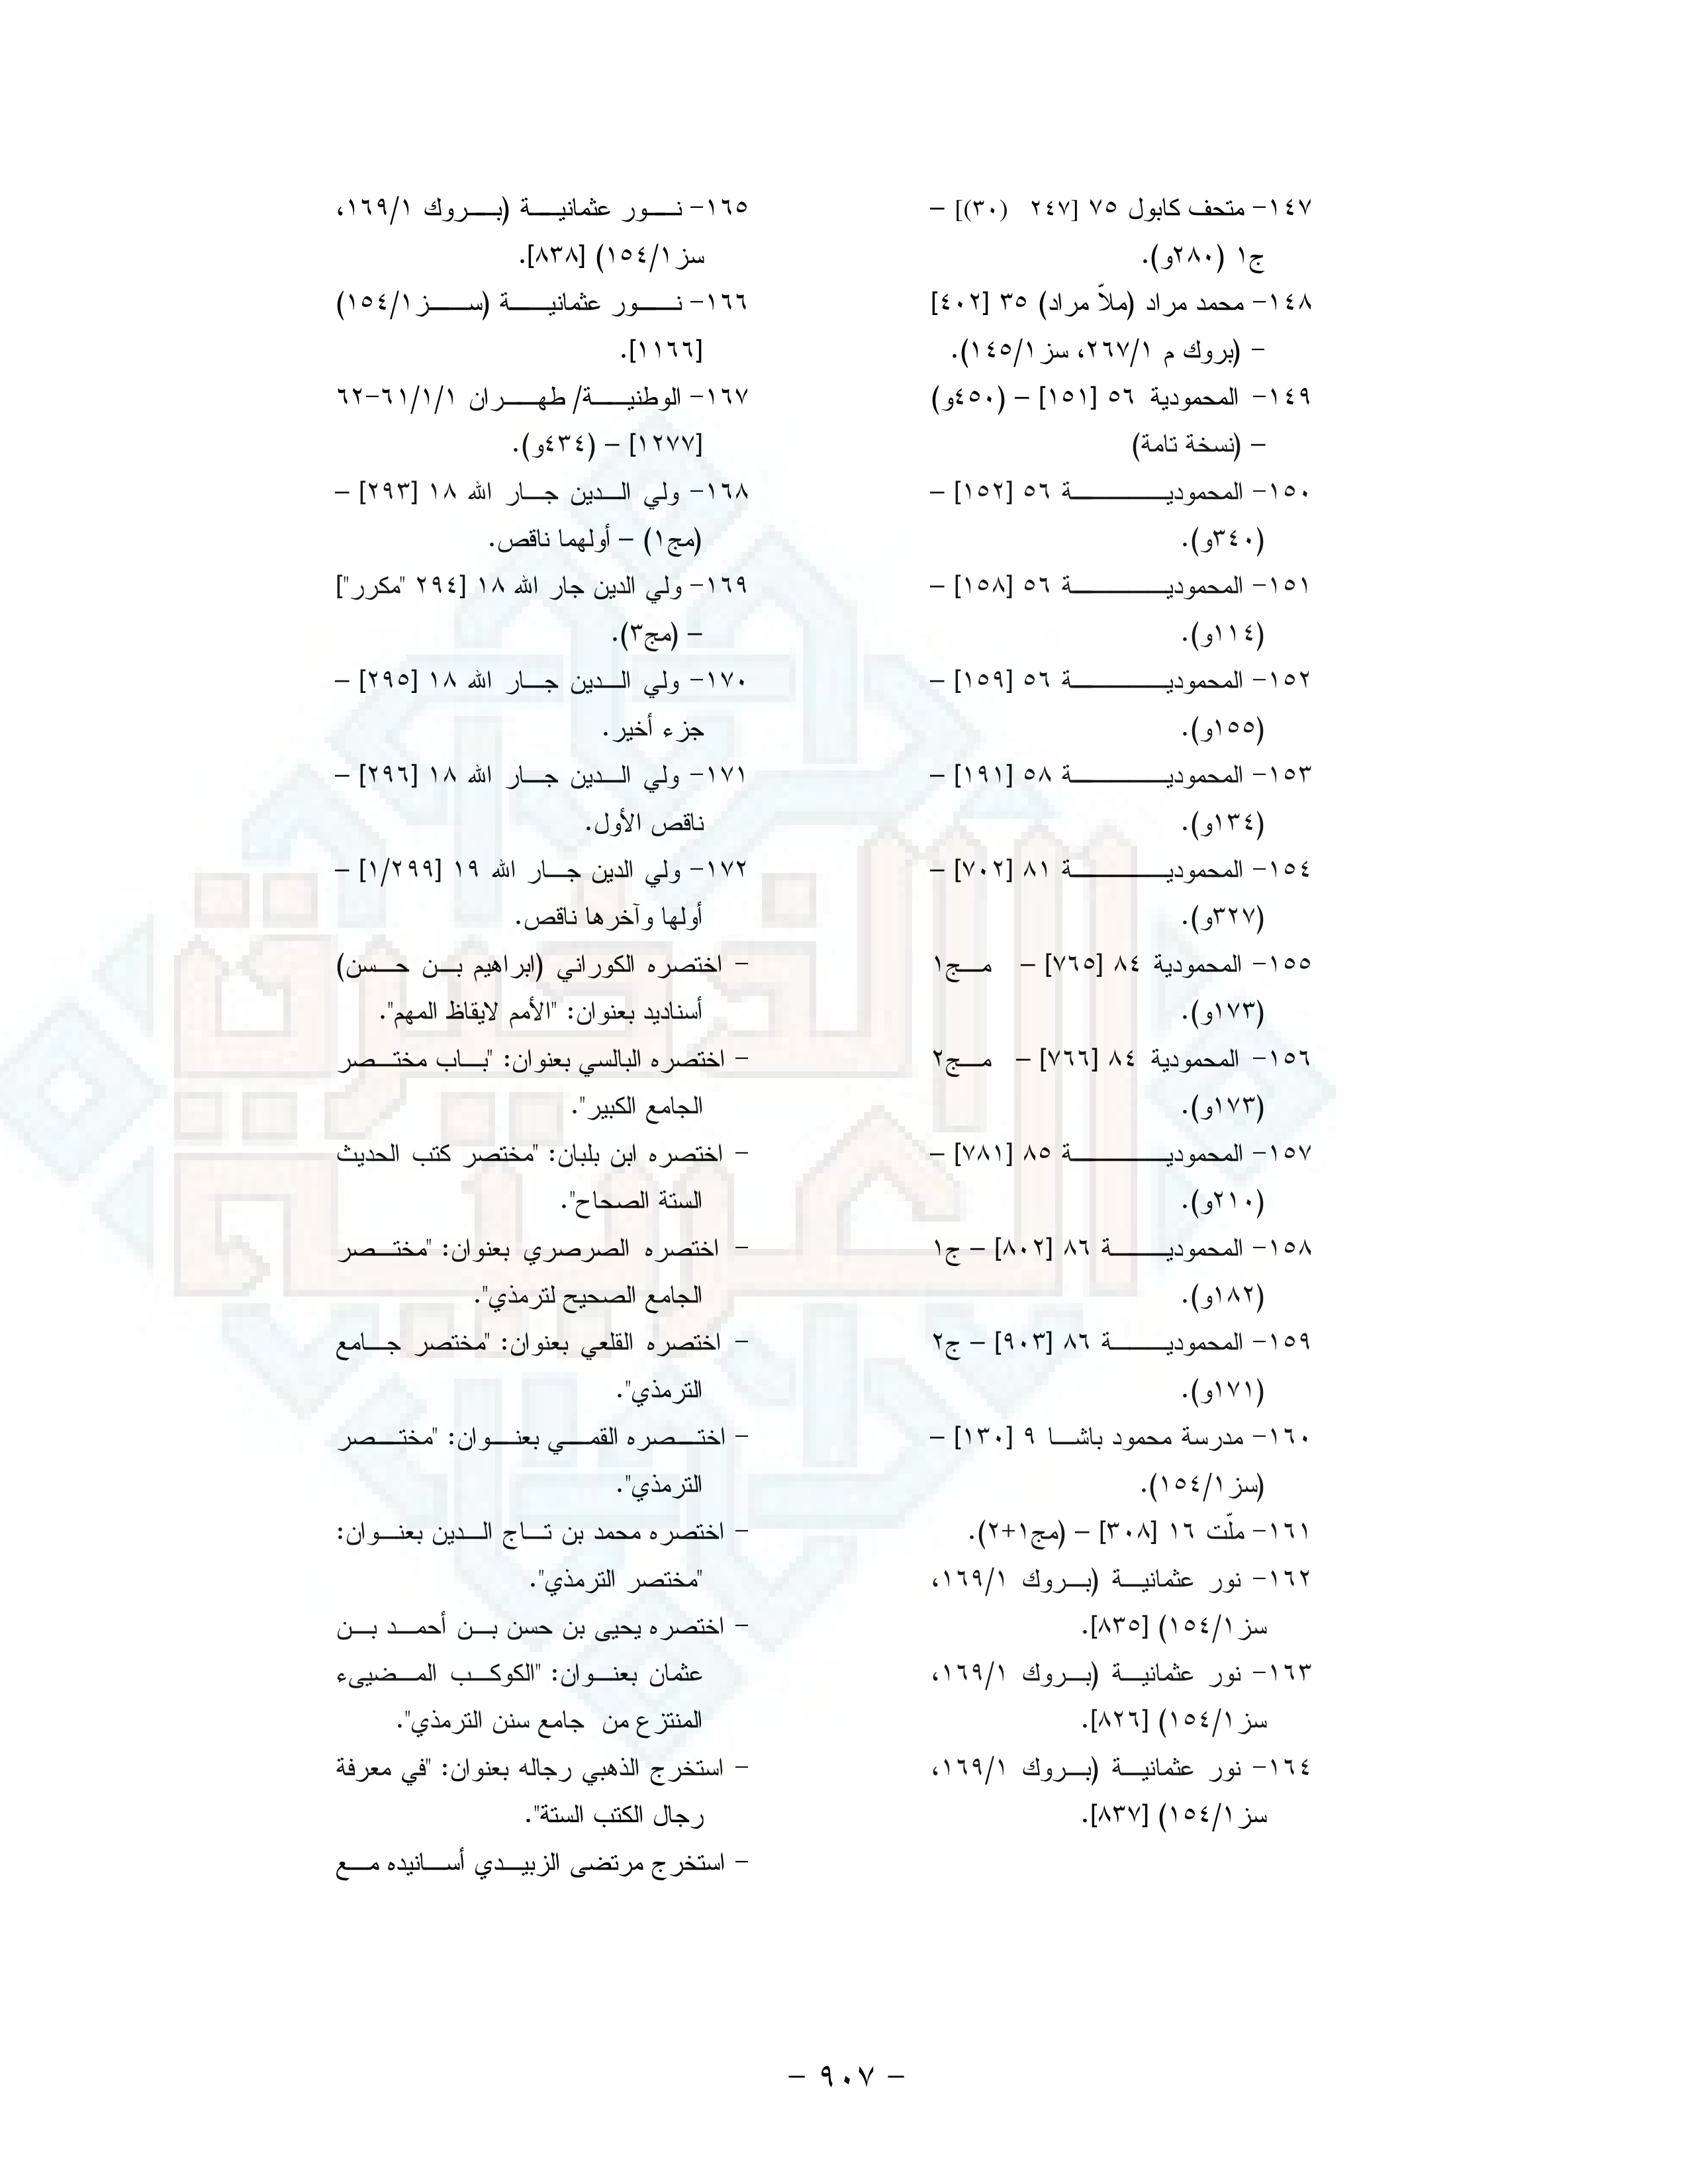 ١٤٧- متحف كابول ٧٥ [٢٤٧ (٣٠)] -
ج١ (٢٨٠و).
١٤٨- محمد مراد (ملاّ مراد) ٣٥ [٤٠٢]
- (بروك م ٢٦٧/١، سز١٤٥/١).
١٤٩- المحمودية ٥٦ [١٥١] - (٤٥٠و)
- (نسخة تامة)
١٥٠- المحموديـــــــــــة ٥٦ [١٥٢] -
(٣٤٠و).
١٥١- المحموديـــــــــــة ٥٦ [١٥٨] -
(١١٤و).
١٥٢- المحموديـــــــــــة ٥٦ [١٥٩] -
(١٥٥و).
١٥٣- المحموديـــــــــــة ٥٨ [١٩١] -
(١٣٤و).
١٥٤- المحموديـــــــــــة ٨١ [٧٠٢] -
(٣٢٧و).
١٥٥- المحمودية ٨٤ [٧٦٥] - مـــج١
(١٧٣و).
١٥٦- المحمودية ٨٤ [٧٦٦] - مـــج٢
(١٧٣و).
١٥٧- المحموديـــــــــــة ٨٥ [٧٨١] -
(٢١٠و).
١٥٨- المحموديـــــــة ٨٦ [٨٠٢] - ج١
(١٨٢و).
١٥٩- المحموديـــــــة ٨٦ [٩٠٣] - ج٢
(١٧١و).
١٦٠- مدرسة محمود باشـــا ٩ [١٣٠] -
(سز١٥٤/١).
١٦١- ملّت ١٦ [٣٠٨] - (مج١+٢).
١٦٢- نور عثمانيـــة (بـــروك ١٦٩/١،
سز١٥٤/١) [٨٣٥].
١٦٣- نور عثمانيـــة (بـــروك ١٦٩/١،
سز١٥٤/١) [٨٢٦].
١٦٤- نور عثمانيـــة (بـــروك ١٦٩/١،
سز١٥٤/١) [٨٣٧].
١٦٥- نـــور عثمانيـــة (بـــروك ١٦٩/١،
سز١٥٤/١) [٨٣٨].
١٦٦- نـــــور عثمانيـــــة (ســـــز١٥٤/١)
[١١٦٦].
١٦٧- الوطنيـــة/ طهـــران ٦١/١/١-٦٢
[١٢٧٧] - (٤٣٤و).
١٦٨- ولي الـــدين جـــار الله ١٨ [٢٩٣] -
(مج١) - أولهما ناقص.
١٦٩- ولي الدين جار الله ١٨ [٢٩٤ "مكرر"]
- (مج٣).
١٧٠- ولي الـــدين جـــار الله ١٨ [٢٩٥] -
جزء أخير.
١٧١- ولي الـــدين جـــار الله ١٨ [٢٩٦] -
ناقص الأول.
١٧٢- ولي الدين جـــار الله ١٩ [١/٢٩٩] -
أولها وآخرها ناقص.
- اختصره الكوراني (ابراهيم بـــن حـــسن)
أسناديد بعنوان: "الأمم لايقاظ المهم".
- اختصره البالسي بعنوان: "بـــاب مختـــصر
الجامع الكبير".
- اختصره ابن بلبان: "مختصر كتب الحديث
الستة الصحاح".
- اختصره الصرصري بعنوان: "مختـــصر
الجامع الصحيح لترمذي".
- اختصره القلعي بعنوان: "مختصر جـــامع
الترمذي".
- اختـــصره القمـــي بعنـــوان: "مختـــصر
الترمذي".
- اختصره محمد بن تـــاج الـــدين بعنـــوان:
"مختصر الترمذي".
- اختصره يحيى بن حسن بـــن أحمـــد بـــن
عثمان بعنـــوان: "الكوكـــب المـــضيىء
المنتزع من جامع سنن الترمذي".
- استخرج الذهبي رجاله بعنوان: "في معرفة
رجال الكتب الستة".
- استخرج مرتضى الزبيـــدي أســـانيده مـــع
- ٩٠٧ -
الذخيرة
العربية